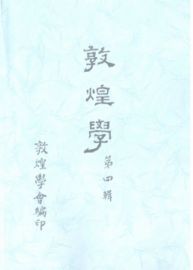 敦煌學
第四輯
敦煌學會編印